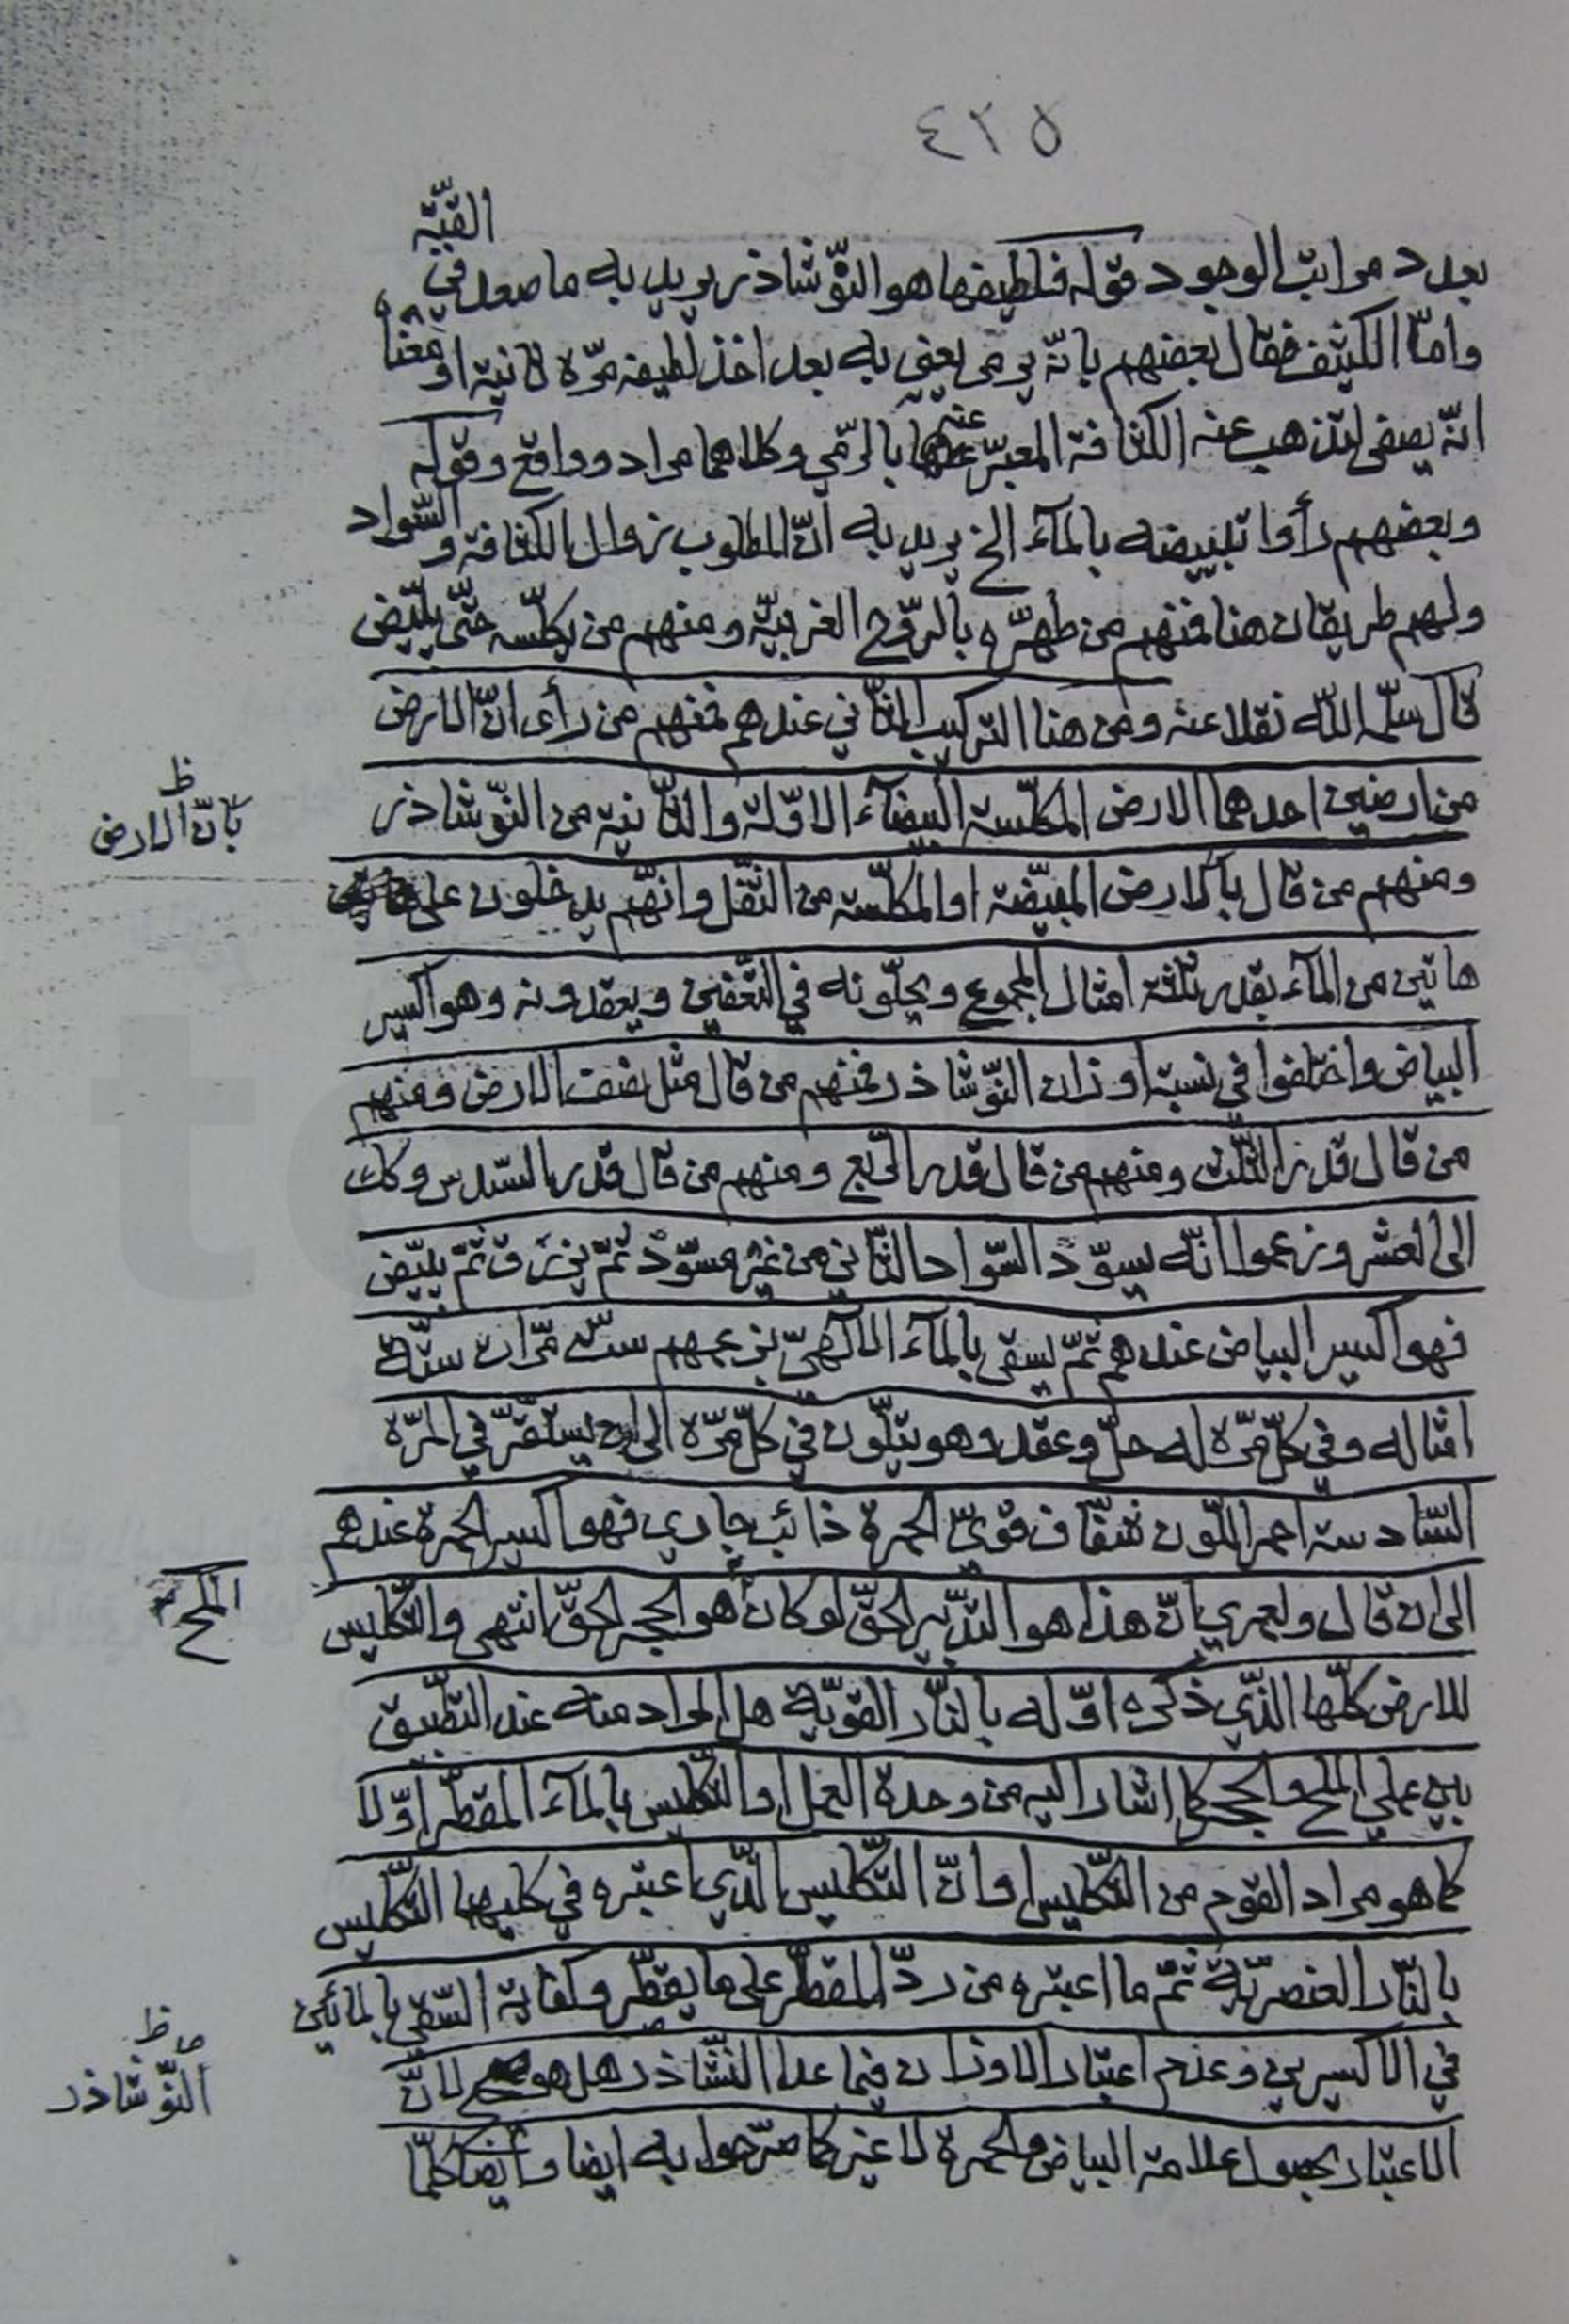 ٤٣٥
القبّة
بعدد مراتب الوجود قوله فلطيفها هو النّوشاذر يريد به ما صعد في
وامّا الكثيف فقال بعضهم بانّه يرمى يعني به بعد اخذ لطيفه مرّة ثانية او معناه
انّه يصفى لتذهب عنه الكثافة المعبّر عنها بالرّمي وكلاهما مراد وواقع وقوله
وبعضهم رأوا تبييضه بالمآء الخ يريد به انّ المطلوب زوال الكثافة والسّواد
ولهم طريقان هنا فمنهم من طهّره بالرّوح الغربيّة ومنهم من يكلّسه حتّى يبيّض
قال سلّمه اللّه نقلا عنه ومن هنا التركيب الثّاني عندهم فمنهم من رأى انّ الارض
من ارضين احدهما الارض المكلّسة البيضآء الاوّلة والثّانية من النّوشاذر
بانّ الارض ظ
ومنهم من قال بالارض المبيّضة او المكلّسة من الثّفل وانّهم يدخلون على
هاتين من المآء بقدر ثلثة امثال المجموع ويحلّونه في التّعفين ويعقدونه وهو اكسير
البياض واختلفوا في نسبة اوزان النّوشاذر فمنهم من قال مثل نصف الارض ومنهم
من قال قدر الثّلث ومنهم من قال قدر الرّبع ومنهم من قال قدر السّدس وكك
الى العشر وزعموا انّه يسوّد السّواد الثّاني من غير مسوّد ثمّ يزرق ثمّ يبيّض
فهو اكسير البياض عندهم ثمّ يسقى بالمآء الالهيّ بزعمهم ستّ مرّات ستّة
امثاله وفي كلّ مرّة له حلّ وعقد وهو يتلّون في كلّ مرّة الى ان يستقرّ في المرّة
السّادسة احمر اللّون شفّاف قويّ الحمرة ذائب جاري فهو اكسير الحمرة عندهم
الى ان قال ولعمري انّ هذا هو التّدبير الحقّ لو كان هو الحجر الحقّ انتهى والتّكليس
الملح
للارض كلّها الّذي ذكره اوّله بالنّار القويّة هل المراد منه عند التطبيق
بين عملي الملح والحجر كما اشار اليه من وحدة العمل او التّكليس بالمآء المقطّر اوّلا
كما هو مراد القوم من التّكليس او انّ التّكليس الّذي اعتبره في كليهما التّكليس
بالنّار العنصريّة ثمّ ما اعتبره من ردّ المقطّر على ما يقطّر وكفاية السّقي بالمائين
في الاكسيرين وعدم اعتبار الاوزان فيما عدا النشّاذر هل هو لانّ
النّوشاذر ظ
الاعتبار بحصول علامة البياض والحمرة لا غير كما صرّحوا به ايضا وايضا كلّما